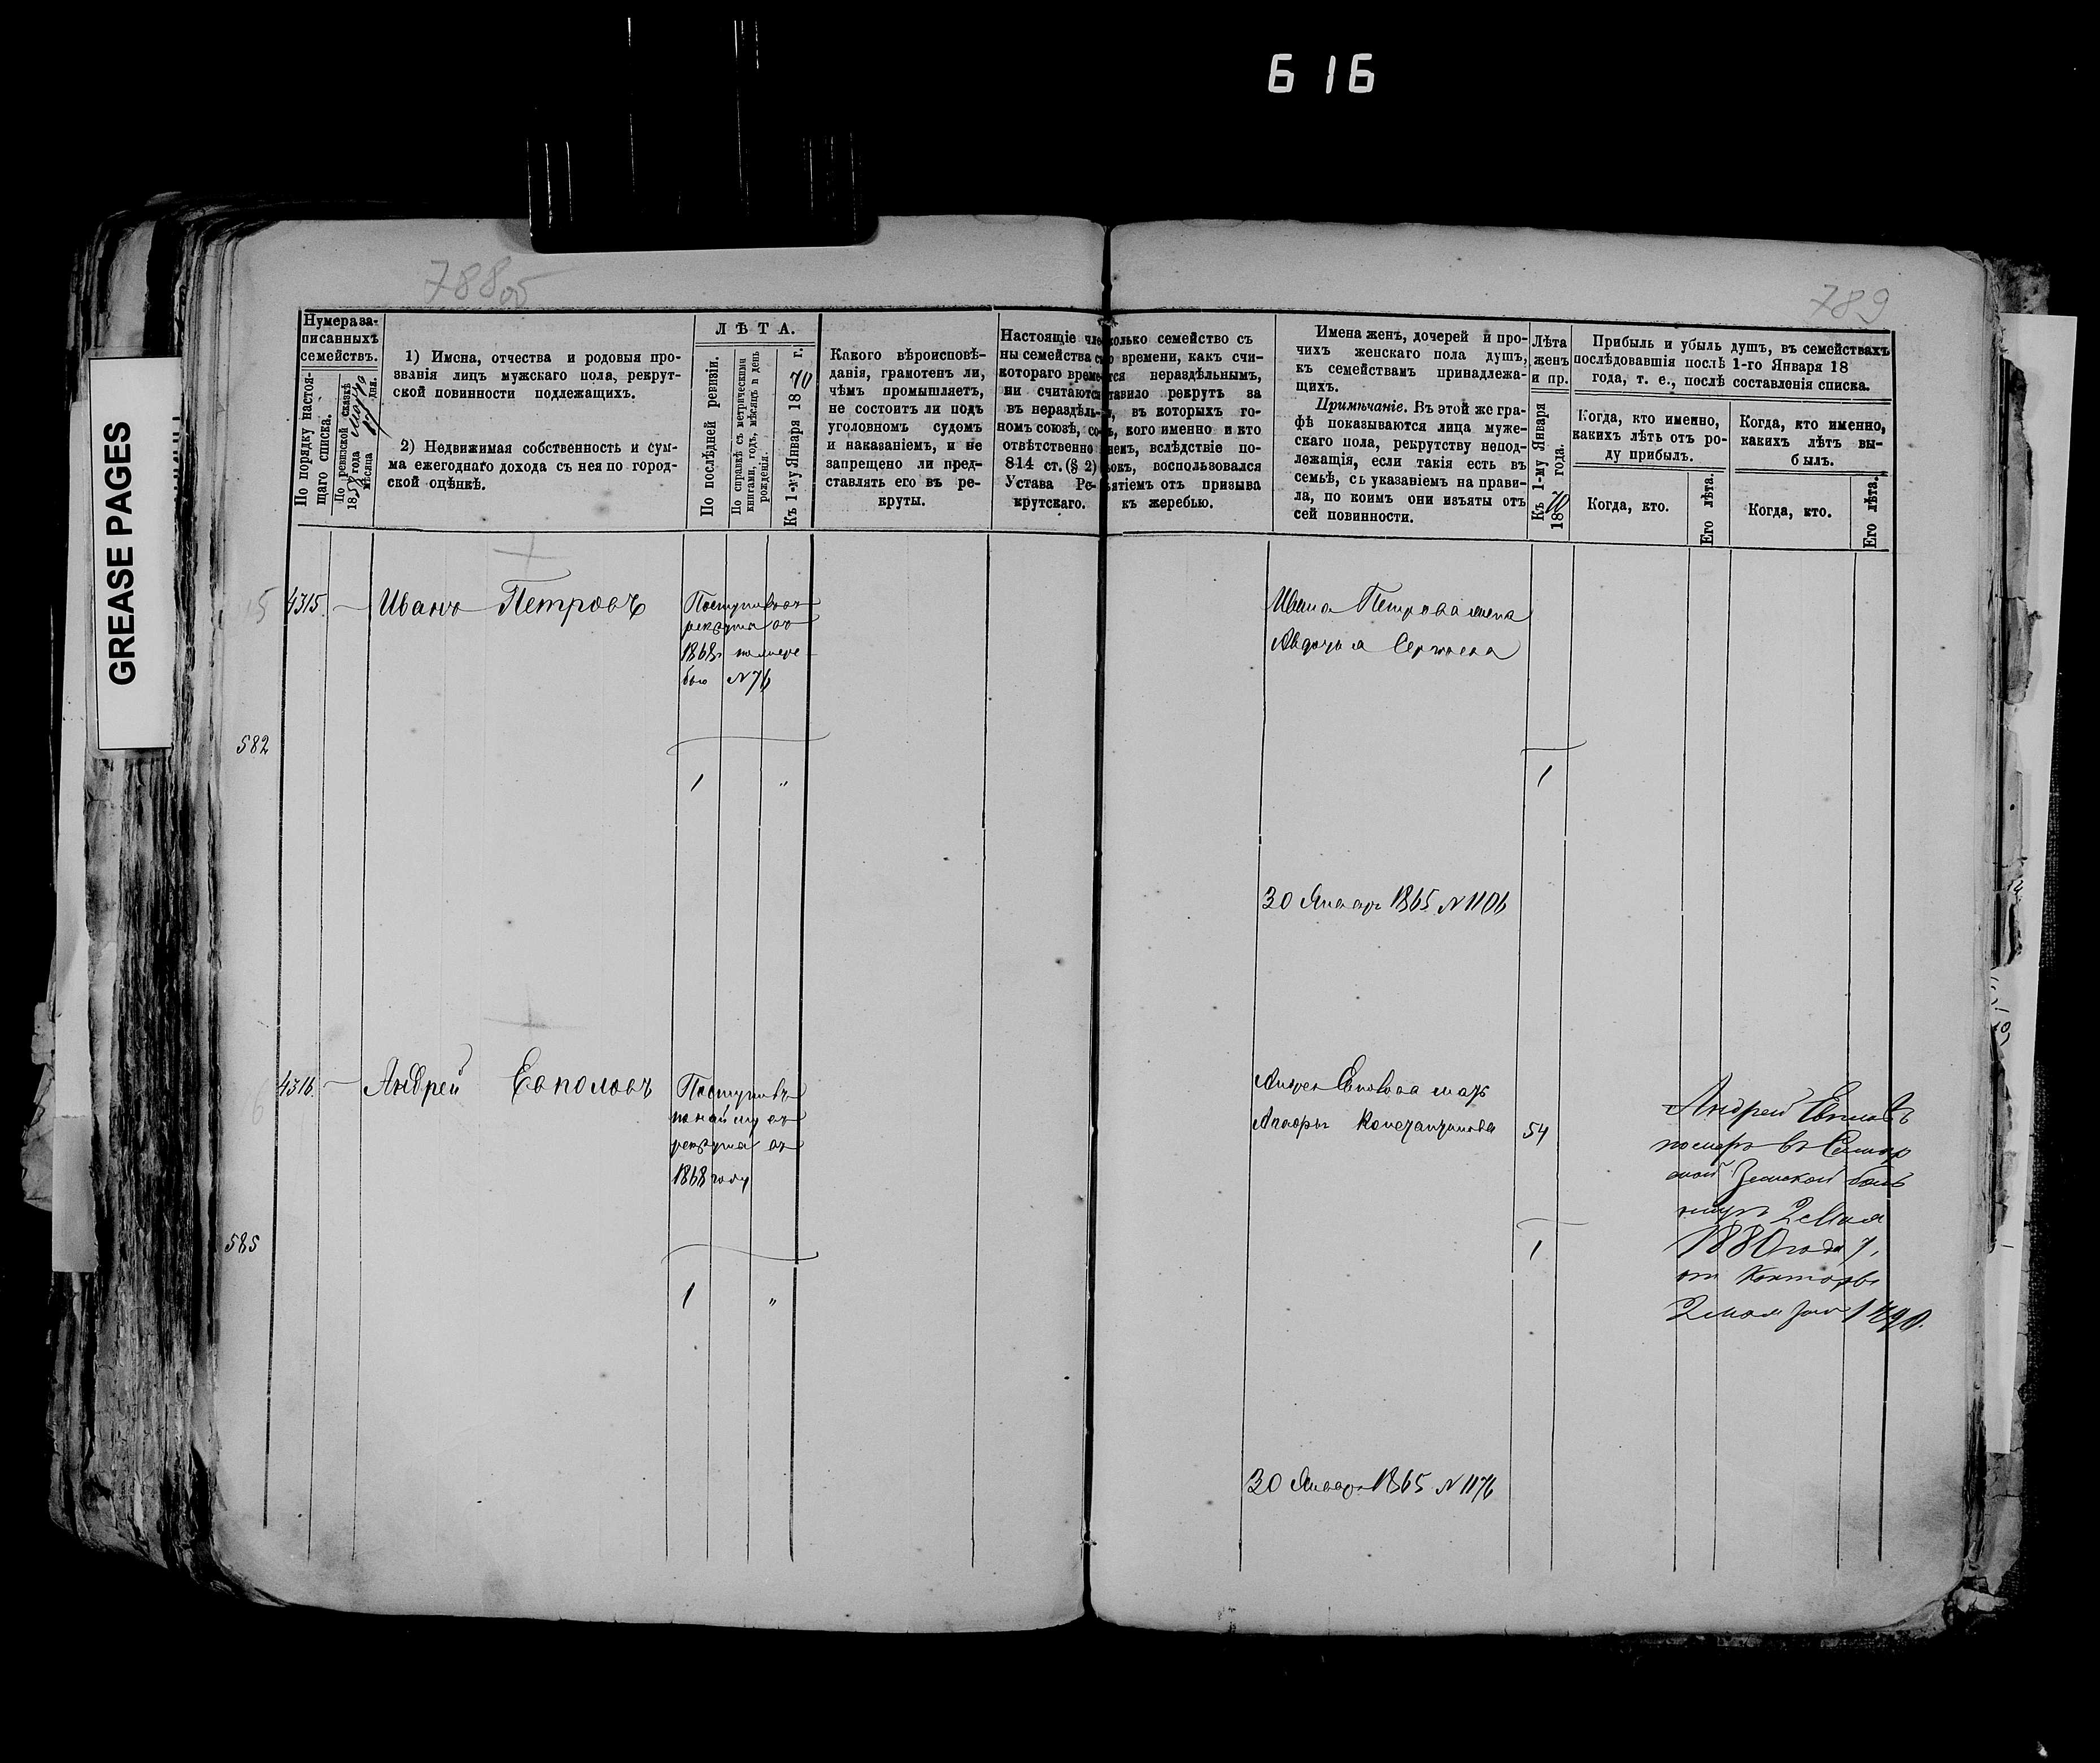 616
GREASE PAGES
788об
789
Нумера за-
писанныхъ
семействъ.
По порядку настоя-
щаго списка.
По ревизской сказкѣ
1858 года
мѣсяца дня.
1) Имена, отчества и родовыя про-
званія лицъ мужскаго пола, рекрут-
ской повинности подлежащихъ.
2) Недвижимая собственность и сум-
ма ежегоднаго дохода съ нея по город-
ской оцѣнкѣ.
ЛѢТА.
По послѣдней ревизіи.
По справкѣ съ метрическими
книгами, годъ, мѣсяцъ и день
рожденія.
Къ 1-му Января 1870 г.
Какого вѣроисповѣ-
данія, грамотенъ ли,
чѣмъ промышляетъ,
не состоитъ ли подъ
уголовномъ судомъ
и наказаніемъ, и не
запрещено ли пред-
ставлять его въ ре-
круты.
Настоящіе чле
ны семейства с
котораго време
ни считаются
въ нераздѣль-
номъ союзѣ, со
отвѣтственно
814 ст. (§ 2)
Устава Ре-
крутскаго.
колько семейство съ
о времени, какъ счи-
тся нераздѣльнымъ,
тавило рекрутъ за
, въ которыхъ го-
ъ, кого именно и кто
немъ, вслѣдствіе по-
ьокъ, воспользовался
ъятіемъ отъ призыва
къ жеребью.
Имена женъ, дочерей и про-
чихъ женскаго пола душъ,
къ семействамъ принадлежа-
щихъ.
Примѣчаніе. Въ этой же гра-
фѣ показываются лица муже-
скаго пола, рекрутству непод-
лежащія, если такія есть въ
семьѣ, съ указаніемъ на прави-
ла, по коимъ они изъяты отъ
сей повинности.
Лѣта
женъ
и пр.
Къ 1-му Января
1870 года.
Прибыль и убыль душъ, въ семействахъ
послѣдовавшія послѣ 1-го Января 18
года, т. е., послѣ составленія списка.
Когда, кто именно,
какихъ лѣтъ отъ ро-
ду прибылъ.
Когда, кто.
Его лѣта.
Когда, кто именно,
какихъ лѣтъ вы-
былъ.
Когда, кто.
Его лѣта.
15
4315. — Иванъ Петровъ
Поступилъ въ
рекруты въ
1868г по жере
бью №76
Ивана Петрова жена
Авдотья Сергѣева
582
1 "
1
30 Январ 1865 №1106
4316. — Андрей
Поступилъ
по найму въ
рекруты въ
1868 году
мать
54
Андрей
померъ въ Самар
ской Земской боль
ницѣ 2 Мая
1880 года
от Конторы
2 мая за № 1490.
585
1 "
1
30 Январ 1865 №1176